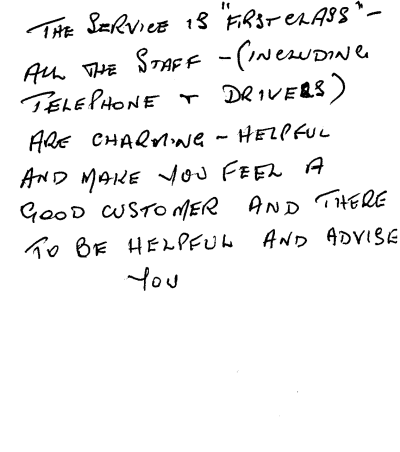 THE SERVICE IS "FIRST CLASS" -
ALL THE STAFF - (INCLUDING
TELEPHONE + DRIVERS)
ARE CHARMING - HELPFUL
AND MAKE YOU FEEL A
GOOD CUSTOMER AND THERE
TO BE HELPFUL AND ADVISE
YOU